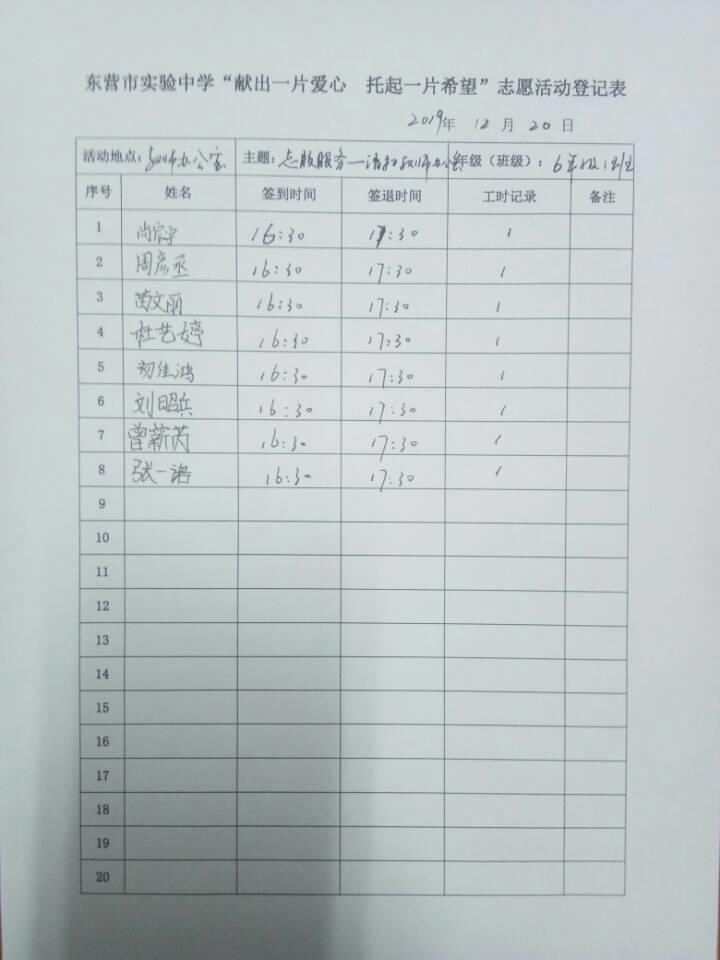 东营市实验中学“献出一片爱心 托起一片希望”志愿活动登记表
2019年 12 月 20 日
活动地点：教师办公室 主题：志愿服务—清扫教师办公室 年级（班级）：6年级1班
序号 姓名 签到时间 签退时间 工时记录 备注
1 尚宸宇 16:30 17:30 1
2 周彦丞 16:30 17:30 1
3 苗文丽 16:30 17:30 1
4 杜艺婷 16:30 17:30 1
5 初佳鸿 16:30 17:30 1
6 刘昭兵 16:30 17:30 1
7 曾薪芮 16:30 17:30 1
8 张一诺 16:30 17:30 1
9
10
11
12
13
14
15
16
17
18
19
20